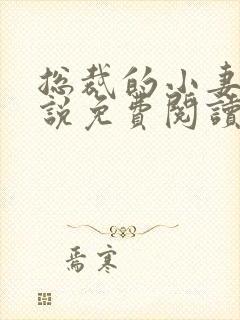 总裁的小妻
説免費閱讀
焉寒